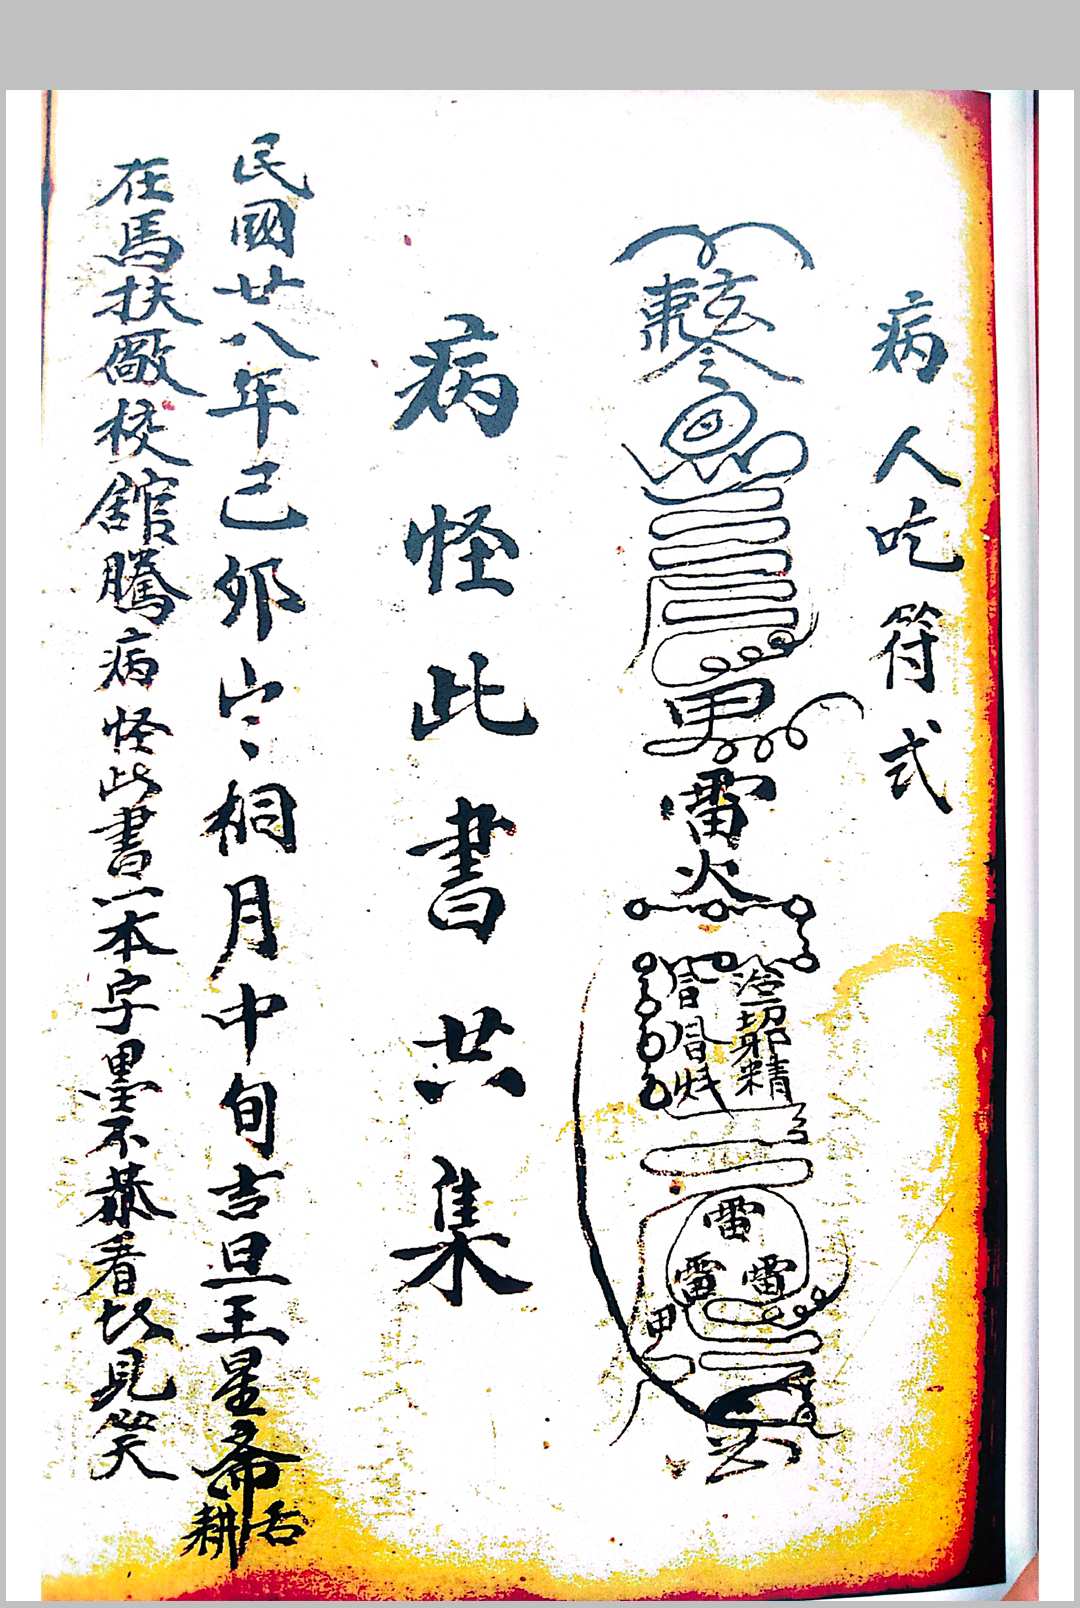 病人吃符式
敕令
雷火
治一切邪精
雷
雷雷
病怪此書共集
民國廿八年己卯 桐月中旬吉旦王星斋舌耕
在馬扶厰校舘騰病怪此書一本字墨不恭看以見笑